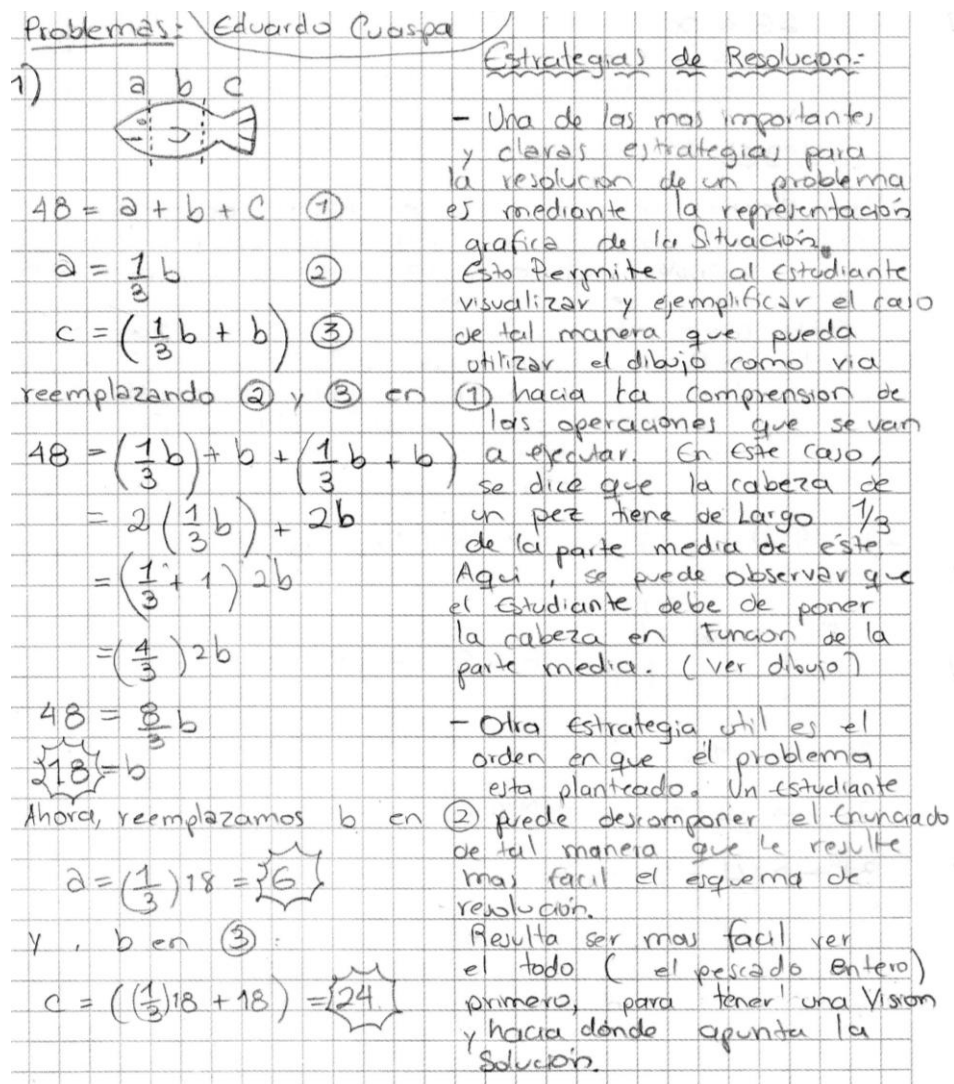 Problemas: Eduardo Cuaspa
1)
a b c
48 = a + b + c ①
a = 1/3 b ②
c = (1/3 b + b) ③
reemplazando ② y ③ en ①
48 = (1/3 b) + b + (1/3 b + b)
= 2 (1/3 b) + 2b
= (1/3 + 1) 2b
= (4/3) 2b
48 = 8/3 b
18 = b
Ahora, reemplazamos b en ②
a = (1/3) 18 = 6
y , b en ③ :
c = ((1/3) 18 + 18) = 24
Estrategias de Resolucion:
- Una de las mas importantes
y claras estrategias para
la resolucion de un problema
es mediante la representación
grafica de la Situación.
Esto Permite al Estudiante
visualizar y ejemplificar el caso
de tal manera que pueda
utilizar el dibujo como via
hacia la comprension de
las operaciones que se van
a ejecutar. En Este caso,
se dice que la cabeza de
un pez tiene de Largo 1/3
de la parte media de éste.
Aqui, se puede observar que
el Estudiante debe de poner
la cabeza en Funcion de la
parte media. (ver dibujo)
- Otra Estrategia util es el
orden en que el problema
esta planteado. Un Estudiante
puede descomponer el Enunciado
de tal manera que le resulte
mas facil el esquema de
resolución.
Resulta ser mas facil ver
el todo (el pescado Entero)
primero, para tener una Vision
y hacia dónde apunta la
Solución.